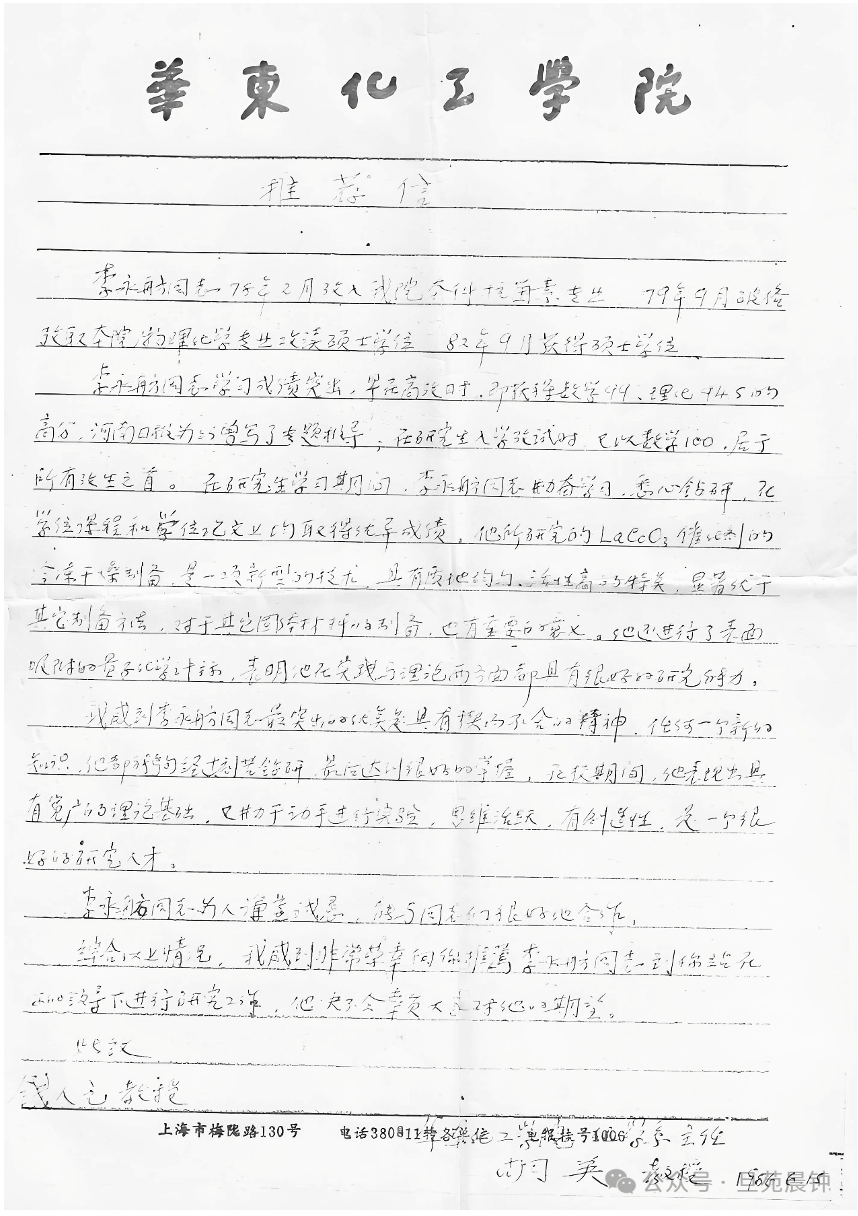 華東化工学院
推荐信
李永舫同志78年2月考入我院 专业 79年9月被
考取本院物理化学专业攻读硕士学位 82年9月获得硕士学位
李永舫同志学习成绩突出，早在高考时，即获得数学99、理化94.5的
高分，河南日报为此曾写了专题报导；在研究生入学考试时 又以数学100，居于
所有考生之首。在研究生学习期间，李永舫同志勤奋学习，悉心钻研，在
学位课程和学位论文上均取得优异成绩。他所研究的LaCoO3催化剂的
冷冻干燥制备，是一项新型的技术，具有质地均匀、活性高的特点，显著优于
其它制备方法，对于其它固体材料的制备，也有重要的意义。他还进行了表面
吸附的量子化学计算，表明他在实践与理论两方面都具有很好的研究能力。
我感到李永舫同志最突出的优点是具有锲而不舍的精神，任何一个新的
知识，他都能够经过刻苦钻研，最后达到很好的掌握，在校期间，他表现出具
有宽广的理论基础，又勤于动手进行实验，思维活跃，有创造性，是一个很
好的研究人才。
李永舫同志为人谦虚诚恳，能与同志们很好地合作。
综合以上情况，我感到非常荣幸向你推荐李永舫同志到你
领导下进行研究工作，他决不会辜负 对他的期望。
此致
钱人元教授
上海市梅陇路130号 电话380811转各 电报挂号1006
华东化工学院 系主任
胡英 教授 1986 6 15
公众号·旦苑晨钟